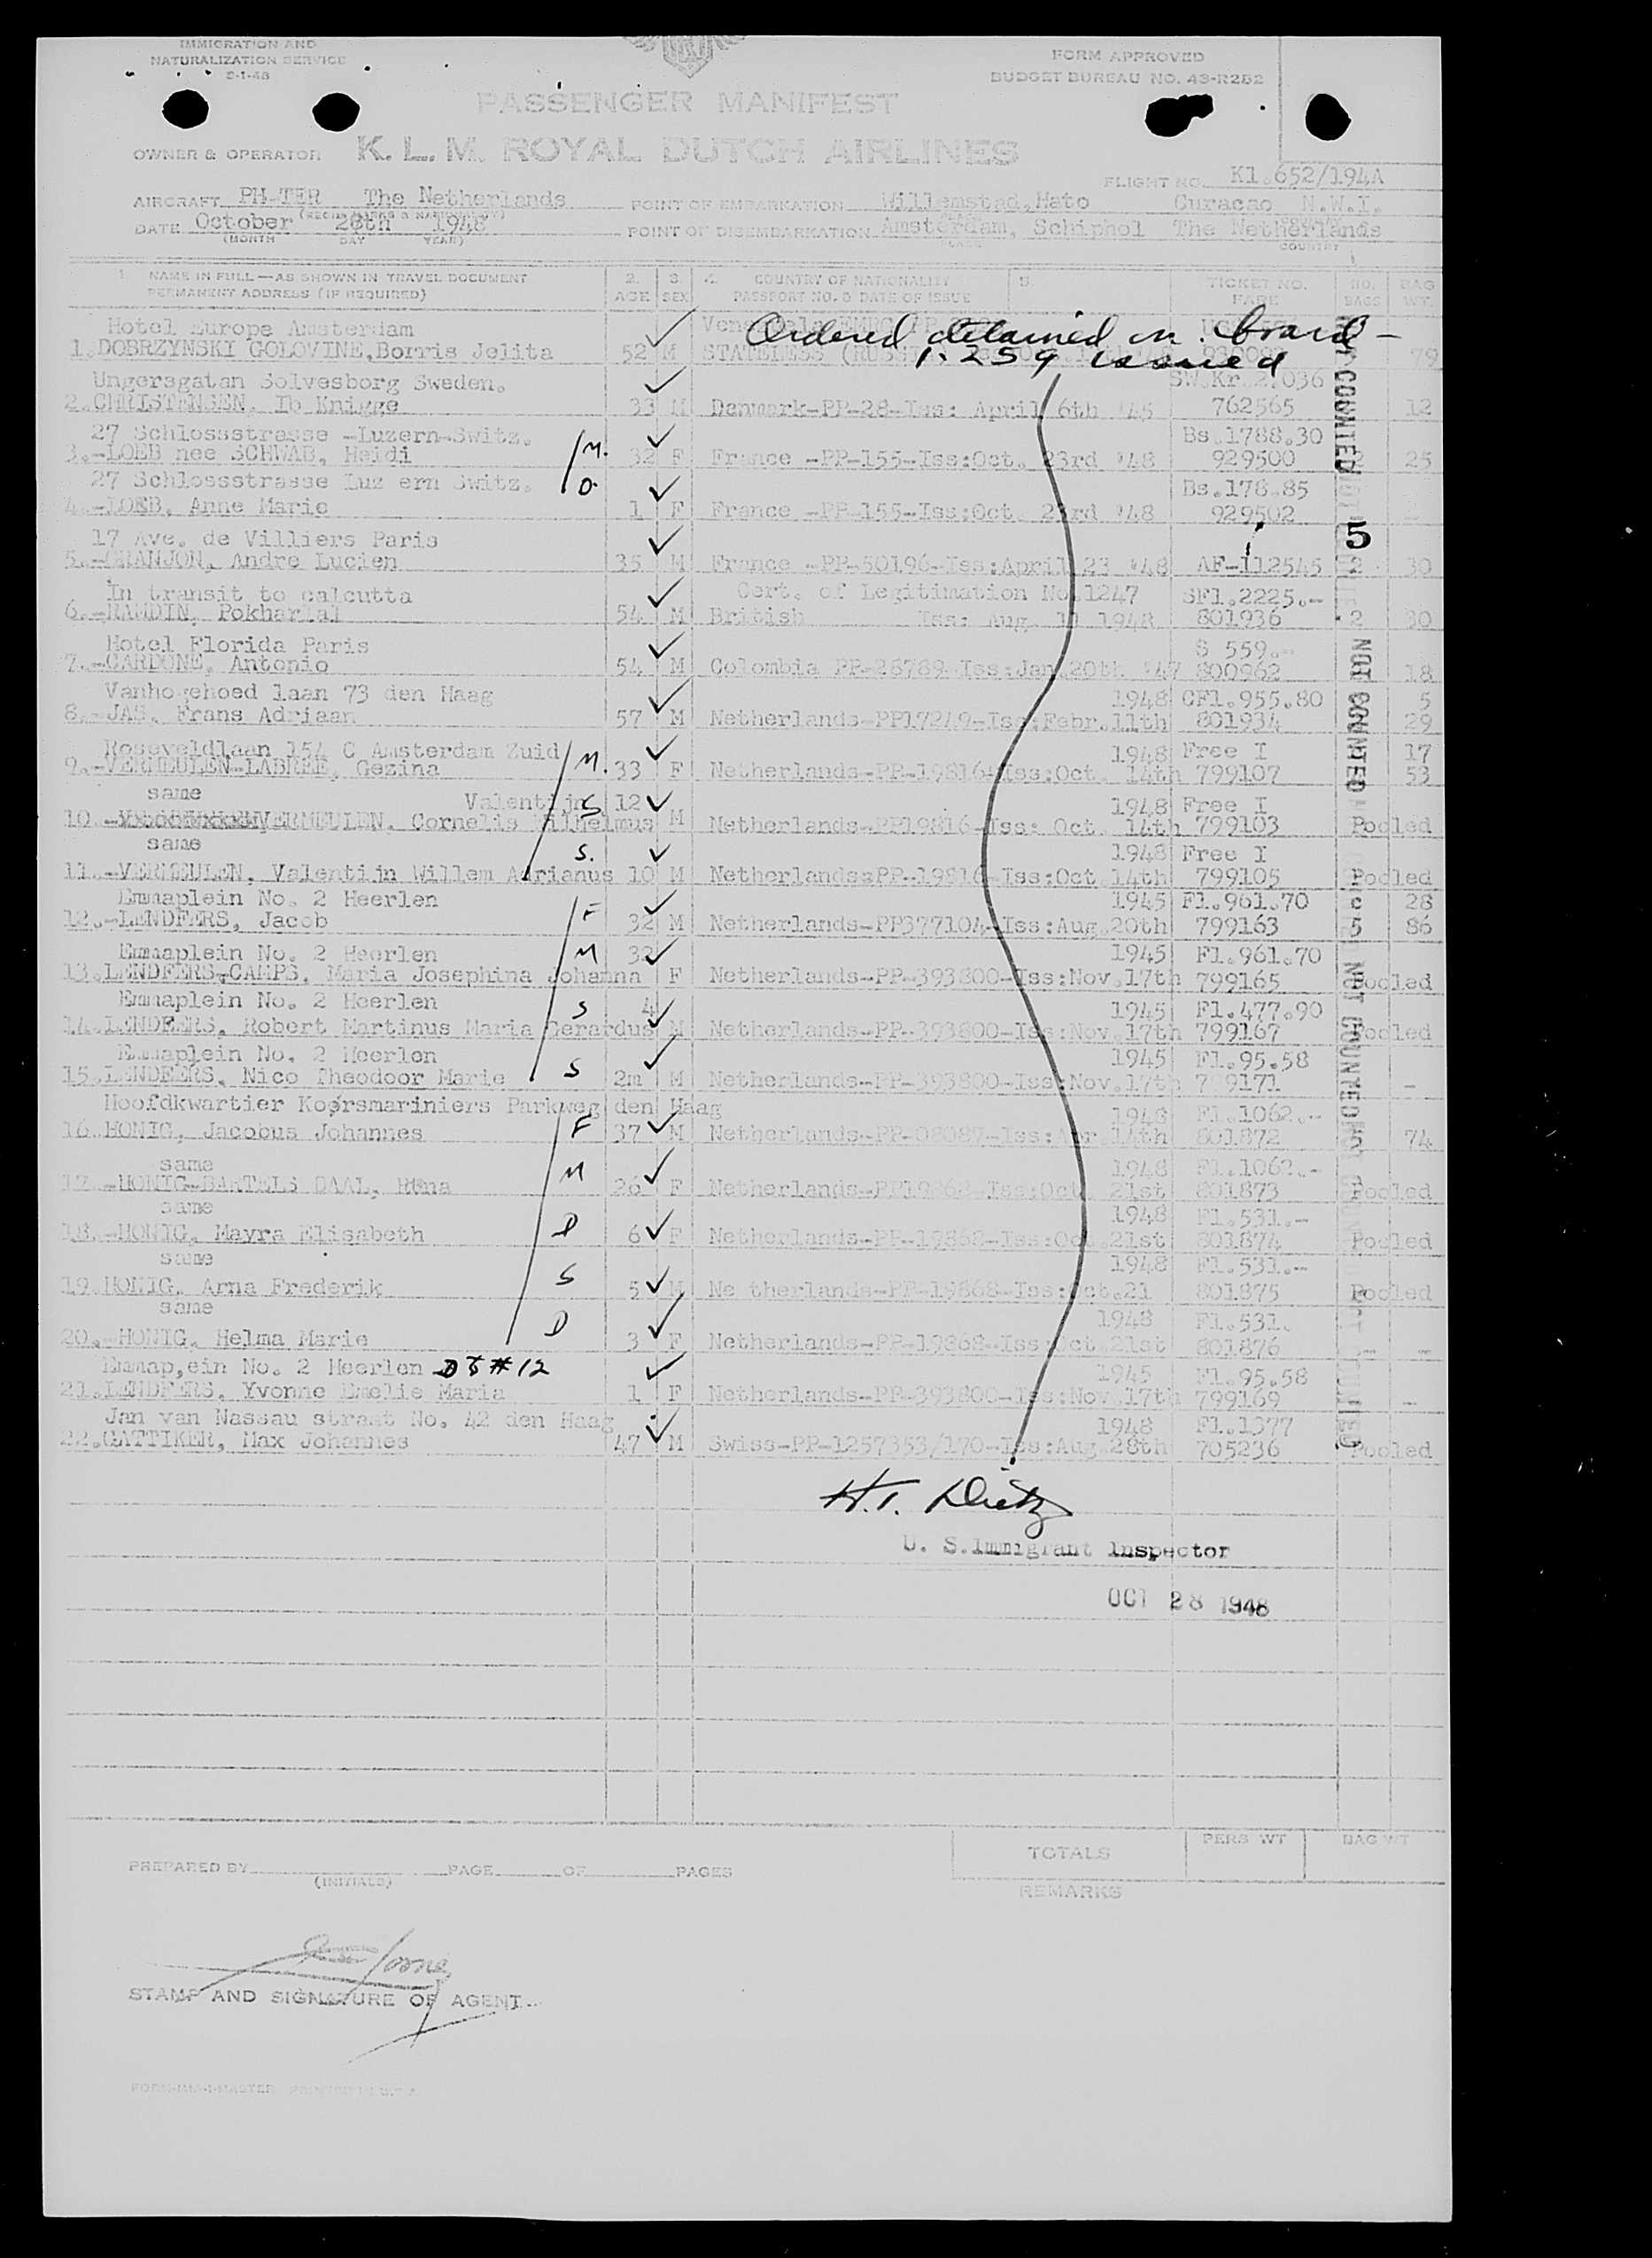 IMMIGRATION AND
NATURALIZATION SERVICE
FORM APPROVED
BUDGET BUREAU NO. 43-R252
PASSENGER MANIFEST
OWNER & OPERATOR K.L.M. ROYAL DUTCH AIRLINES
FLIGHT NO. Kl.652/194A
AIRCRAFT PH-TER The Netherlands POINT OF EMBARKATION Willemstad,Hato Curacao N.W.I.
DATE October 28th 1948 POINT OF DISEMBARKATION Amsterdam, Schiphol The Netherlands
(MONTH DAY YEAR) PLACE COUNTRY
1. NAME IN FULL—AS SHOWN IN TRAVEL DOCUMENT 2. 3. 4. COUNTRY OF NATIONALITY 5. TICKET NO. NO. BAG
PERMANENT ADDRESS (IF REQUIRED) AGE SEX PASSPORT NO. & DATE OF ISSUE FARE BAGS WT.
Hotel Europe Amsterdam
Ordered detained on board -
1.DOBRZYNSKI GOLOVINE,Borris Jelita 52 M STATELESS 79
I-259 issued
Ungersgatan Solvesborg Sweden. SW.Kr.2.036
2.CHRISTENSEN, Ib Knigge 33 M Denmark-PP-28-Iss: April 6th '45 762565 12
27 Schlossstrasse -Luzern-Switz. Bs.1788.30
3.-LOEB nee SCHWAB, Heidi M. 32 F France -PP-155-Iss:Oct. 23rd '48 929500 2 25
27 Schlossstrasse Luz ern Switz. D. Bs.178.85
4.-LOEB, Anne Marie 1 F France -PP-155-Iss:Oct. 23rd '48 929502 -
17 Ave. de Villiers Paris 5
5.-GRANJON, Andre Lucien 35 M France -PP-50196-Iss:April 23 '48 AF-112545 2 30
In transit to calcutta Cert. of Legitimation No.1247 SFl.2225.-
6.-RAMDIN, Pokharlal 54 M British Iss: Aug. 11 1948 801936 2 30
Hotel Florida Paris $ 559.-
7.-CARDONE, Antonio 54 M Colombia PP-28789-Iss:Jan.20th '47 800962 18
Vanhogehoed laan 73 den Haag 1948 CFl.955.80 5
8.-JAS, Frans Adriaan 57 M Netherlands-PP17249-Iss:Febr.11th 801934 29
Roseveldlaan 154 C Amsterdam Zuid 1948 Free I 17
9.-VERMEULEN-LABREE, Gezina M. 33 F Netherlands-PP-19816-Iss:Oct. 14th 799107 53
same Valentijn S 12 1948 Free I
10.-VERMEULEN, Cornelis Wilhelmus M Netherlands-PP19816-Iss: Oct. 14th 799103 Pooled
same S. 1948 Free I
11.-VERMEULEN, Valentijn Willem Adrianus 10 M Netherlands:PP-19816-Iss:Oct 14th 799105 Pooled
Emmaplein No. 2 Heerlen F 1945 Fl.961.70 c 28
12.-LENDFERS, Jacob 32 M Netherlands-PP377104-Iss:Aug.20th 799163 5 86
Emmaplein No. 2 Heerlen M 32 1945 Fl.961.70
13.LENDFERS-CAMPS, Maria Josephina Johanna F Netherlands-PP-393800-Iss:Nov.17th 799165 Pooled
Emmaplein No. 2 Heerlen S 4 1945 Fl.477.90
14.LENDFERS, Robert Martinus Maria Gerardus M Netherlands-PP-393800-Iss:Nov.17th 799167 Pooled
Emmaplein No. 2 Heerlen 1945 Fl.95.58
15.LENDFERS, Nico Theodoor Marie S 2m M Netherlands-PP-393800-Iss:Nov.17th 799171 -
Hoofdkwartier Koorsmariniers Parkweg den Haag 1948 Fl.1062.-
16.HONIG, Jacobus Johannes F 37 M Netherlands-PP-08087-Iss:Apr 14th 801872 74
same M 1948 Fl.1062.-
17.-HONIG-BARTELS DAAL, Rina 26 F Netherlands-PP19868-Iss:Oct. 21st 801873 Pooled
same D 1948 Fl.531.-
18.-HONIG, Mayra Elisabeth 6 F Netherlands-PP-19868-Iss:Oct.21st 801874 Pooled
same S 1948 Fl.531.-
19.HONIG, Arna Frederik 5 M Ne therlands-PP-19868-Iss:Oct.21 801875 Pooled
same D 1948 Fl.531.
20.-HONIG, Helma Marie 3 F Netherlands-PP-19868-Iss Oct.21st 801876 - -
Emmap,ein No. 2 Heerlen #12 1945 Fl.95.58
21.LENDFERS, Yvonne Emelie Maria 1 F Netherlands-PP-393800-Iss:Nov.17th 799169 -
Jan van Nassau straat No. 42 den Haag 1948 Fl.1377
22.GATTIKER, Max Johannes 47 M Swiss-PP-1257353/170-Iss:Aug.28th 705236 Pooled
NOT COUNTED
NOT COUNTED
NOT COUNTED
H.T. Dietz
U. S. Immigrant Inspector
OCT 28 1948
TOTALS PERS WT BAG WT
PREPARED BY PAGE OF PAGES
(INITIALS)
REMARKS
STAMP AND SIGNATURE OF AGENT